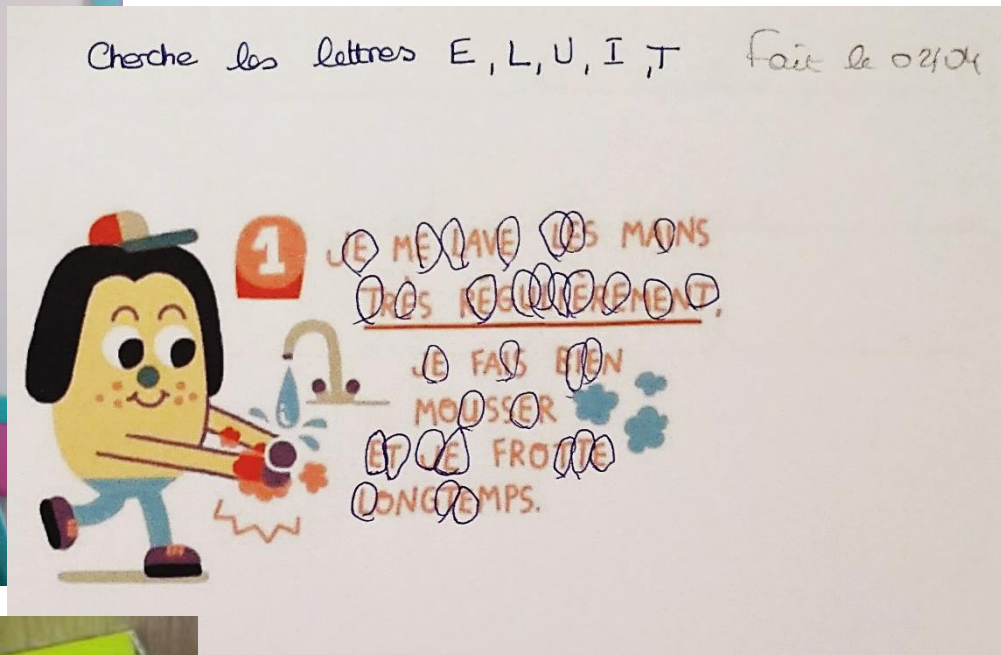 Cherche les lettres E, L, U, I, T Fait le 02/04
1 JE ME LAVE LES MAINS
TRÈS RÉGULIÈREMENT,
JE FAIS BIEN
MOUSSER
ET JE FROTTE
LONGTEMPS.